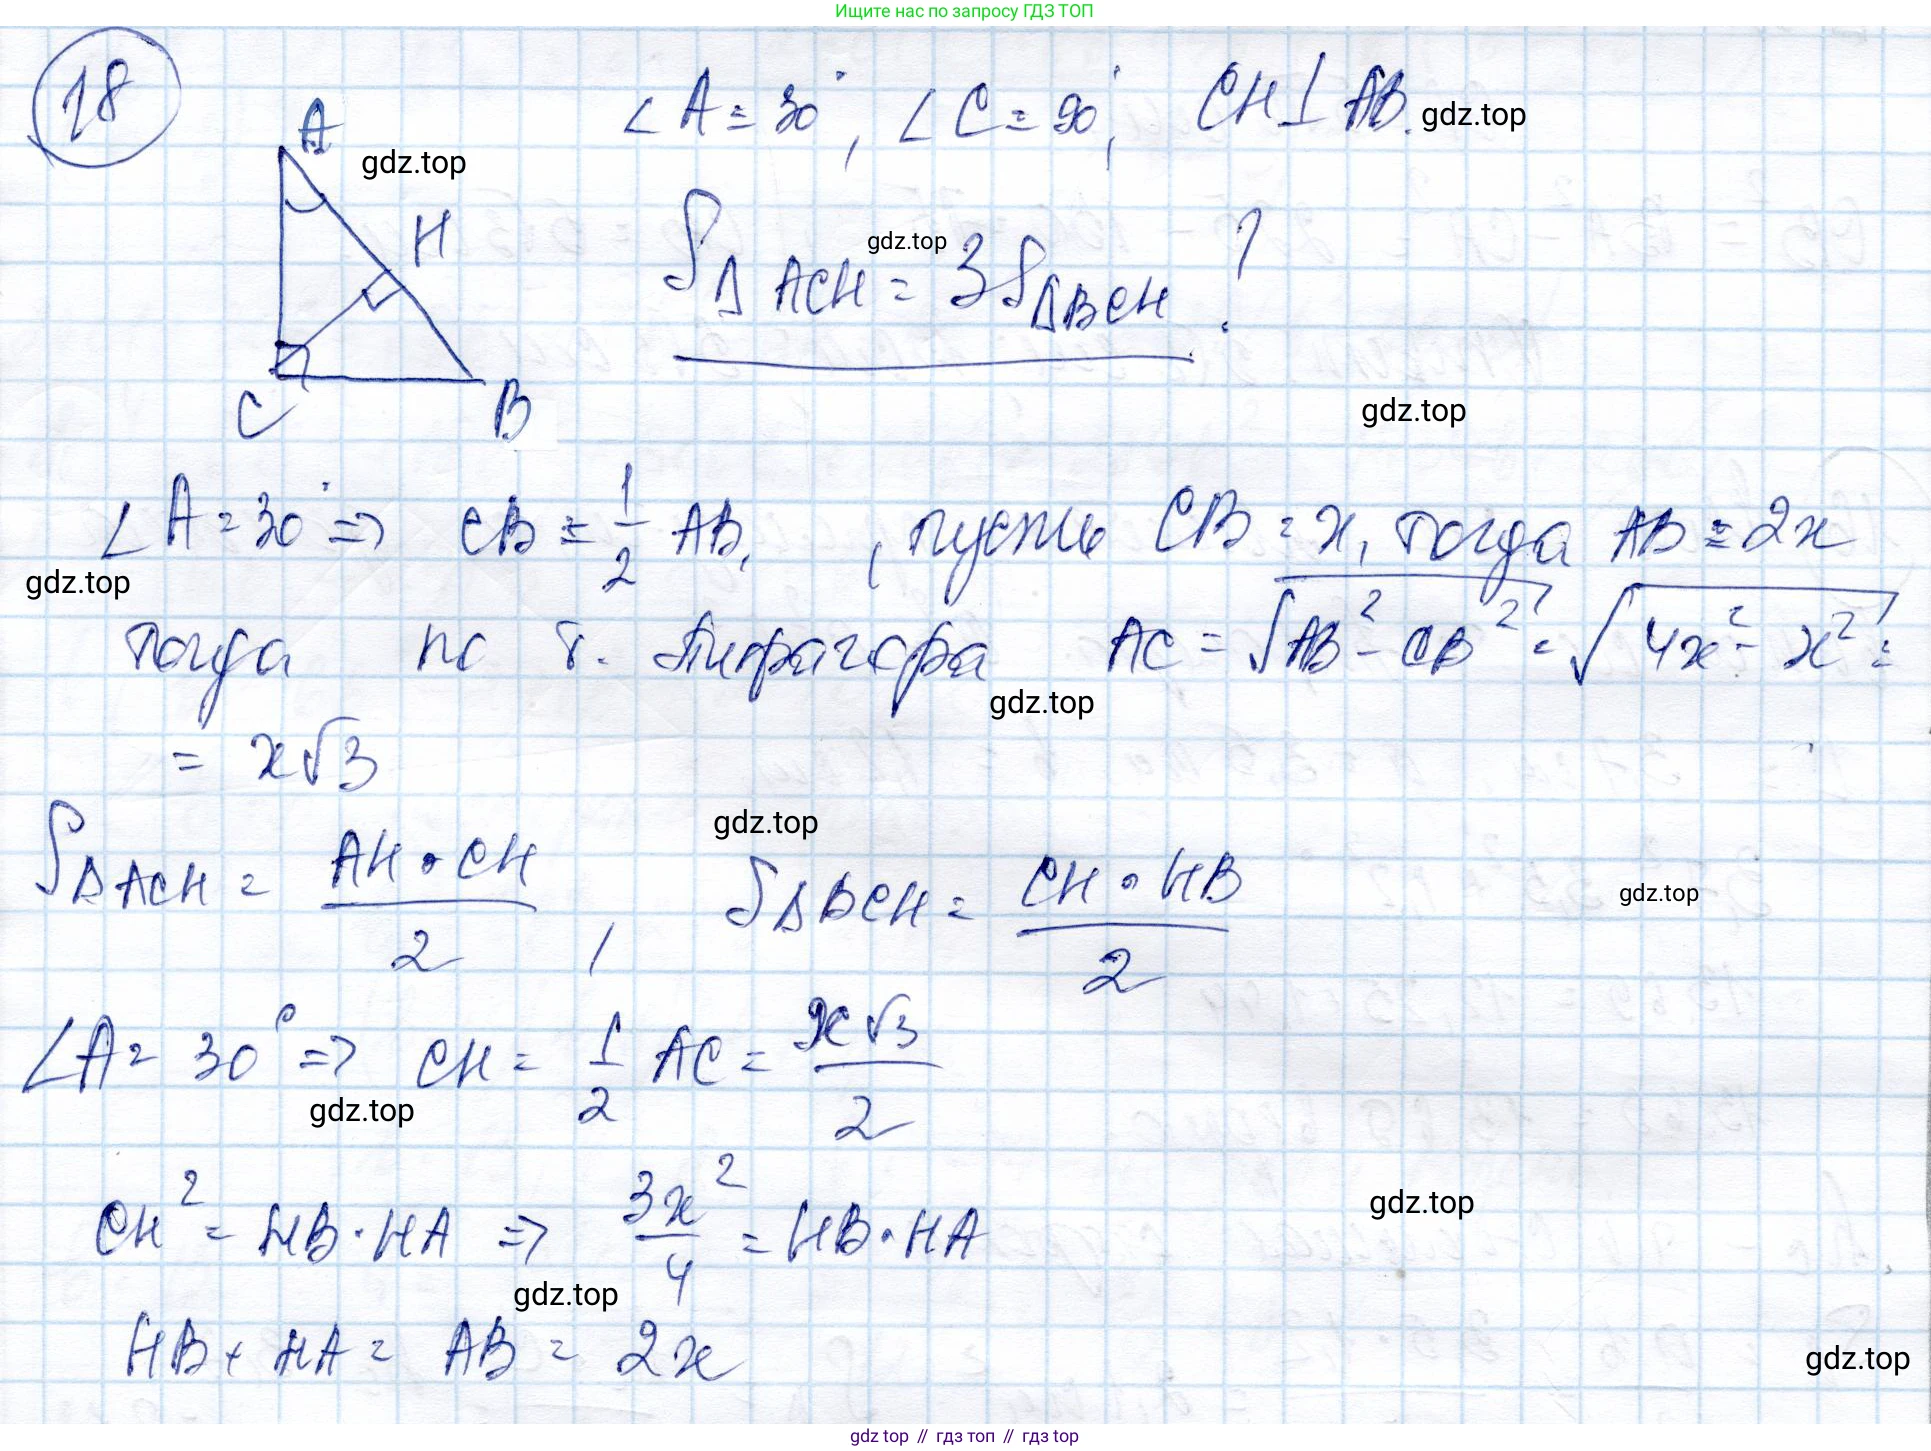 Ищите нас по запросу ГДЗ ТОП
18
∠A = 30°, ∠C = 90°, CH⊥AB. gdz.top
A
gdz.top
H
S△ACH = 3S△BCH ?
gdz.top
C
B
gdz.top
∠A = 30° => CB = 1/2 AB, , пусть CB = x, тогда AB = 2x
gdz.top
Тогда по т. Пифагора AC = √(AB² - CB²) = √(4x² - x²) =
gdz.top
= x√3
gdz.top
S△ACH = (AH · CH)/2 , S△BCH = (CH · HB)/2
gdz.top
∠A = 30° => CH = 1/2 AC = x√3/2
gdz.top
CH² = HB · HA => 3x²/4 = HB · HA
gdz.top
gdz.top
HB + HA = AB = 2x
gdz.top
gdz top // гдз топ // гдз top